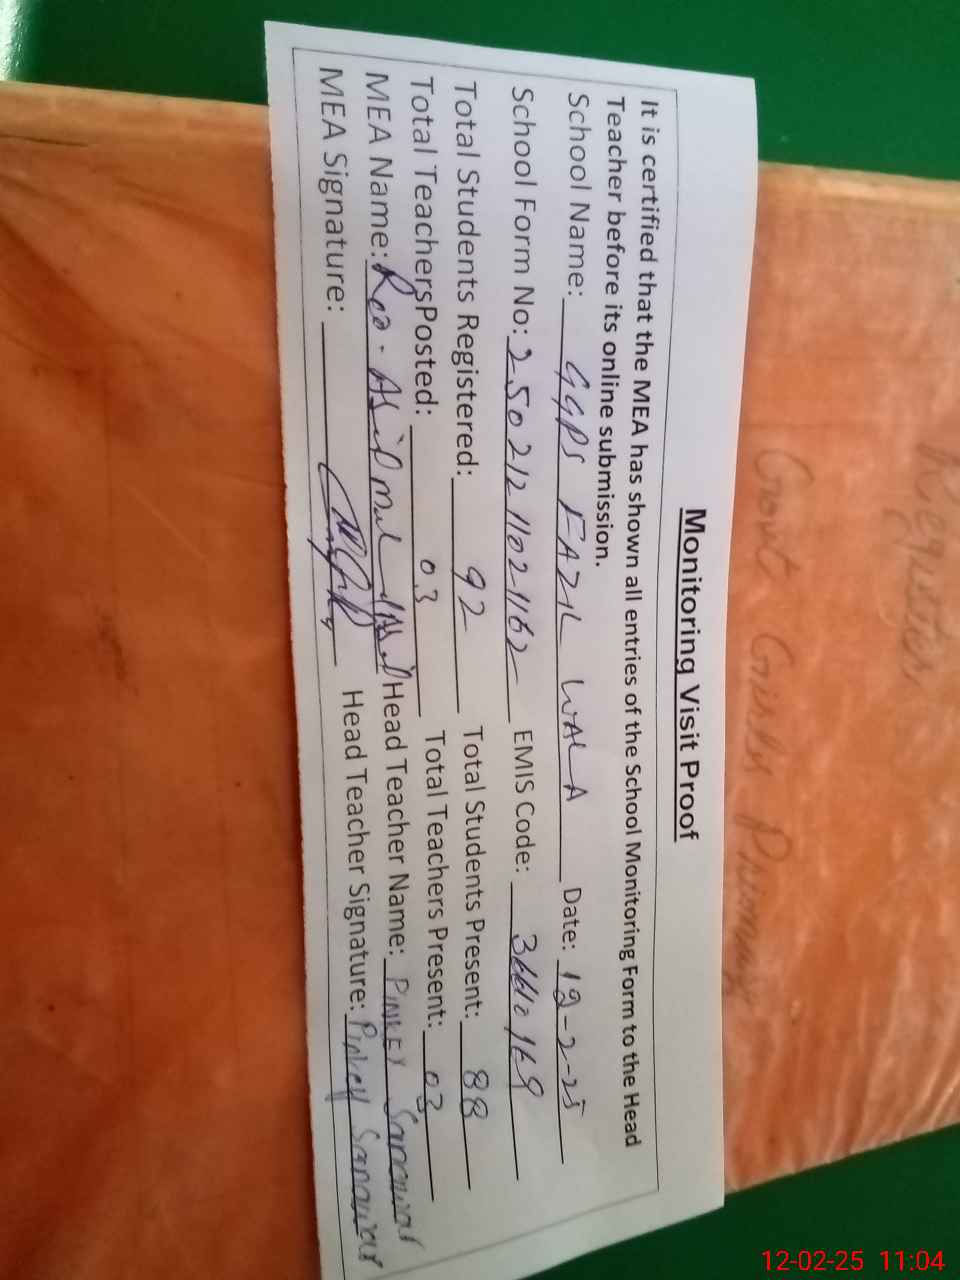 Register
Govt Girls Primary
Monitoring Visit Proof
It is certified that the MEA has shown all entries of the School Monitoring Form to the Head
Teacher before its online submission.
School Name: GGPS FAZIL WALA Date: 12-2-25
School Form No: 250212 1102 1162 EMIS Code:
Total Students Registered: 92 Total Students Present: 88
Total Teachers Posted: 03 Total Teachers Present: 03
MEA Name: Asif Head Teacher Name: PINKEY
MEA Signature: Head Teacher Signature: Pinkey
12-02-25 11:04